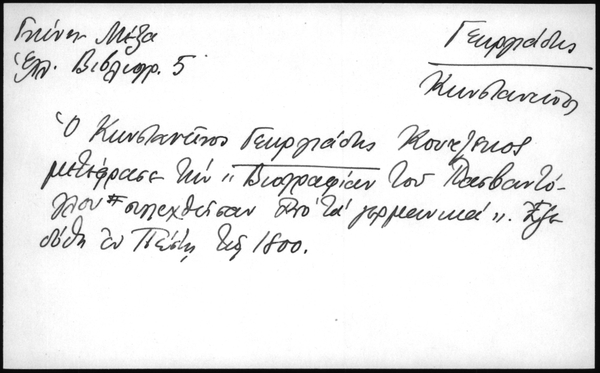 Γκίνη Μέξα
Ἑλλ. Βιβλιογρ. 5
Γεωργιάδης
Κωνσταντῖνος
Ὁ Κωνσταντῖνος Γεωργιάδης Κουτζικος
μετέφρασε τὴν „Βιογραφίαν τοῦ Πασβαντό-
γλου συλεχθεῖσαν ἀπὸ τὰ γερμανικά„. Ἐξε
δόθη ἐν Πέστῃ τῷ 1800.